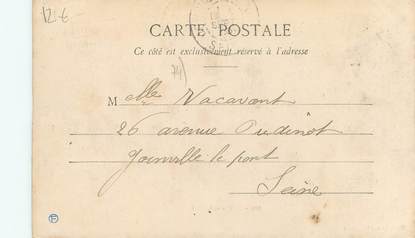 12.€
CARTE POSTALE
Ce côté est exclusivement réservé à l'adresse
Melle Vacavant
26 avenue Oudinot
Joinville le pont
Seine